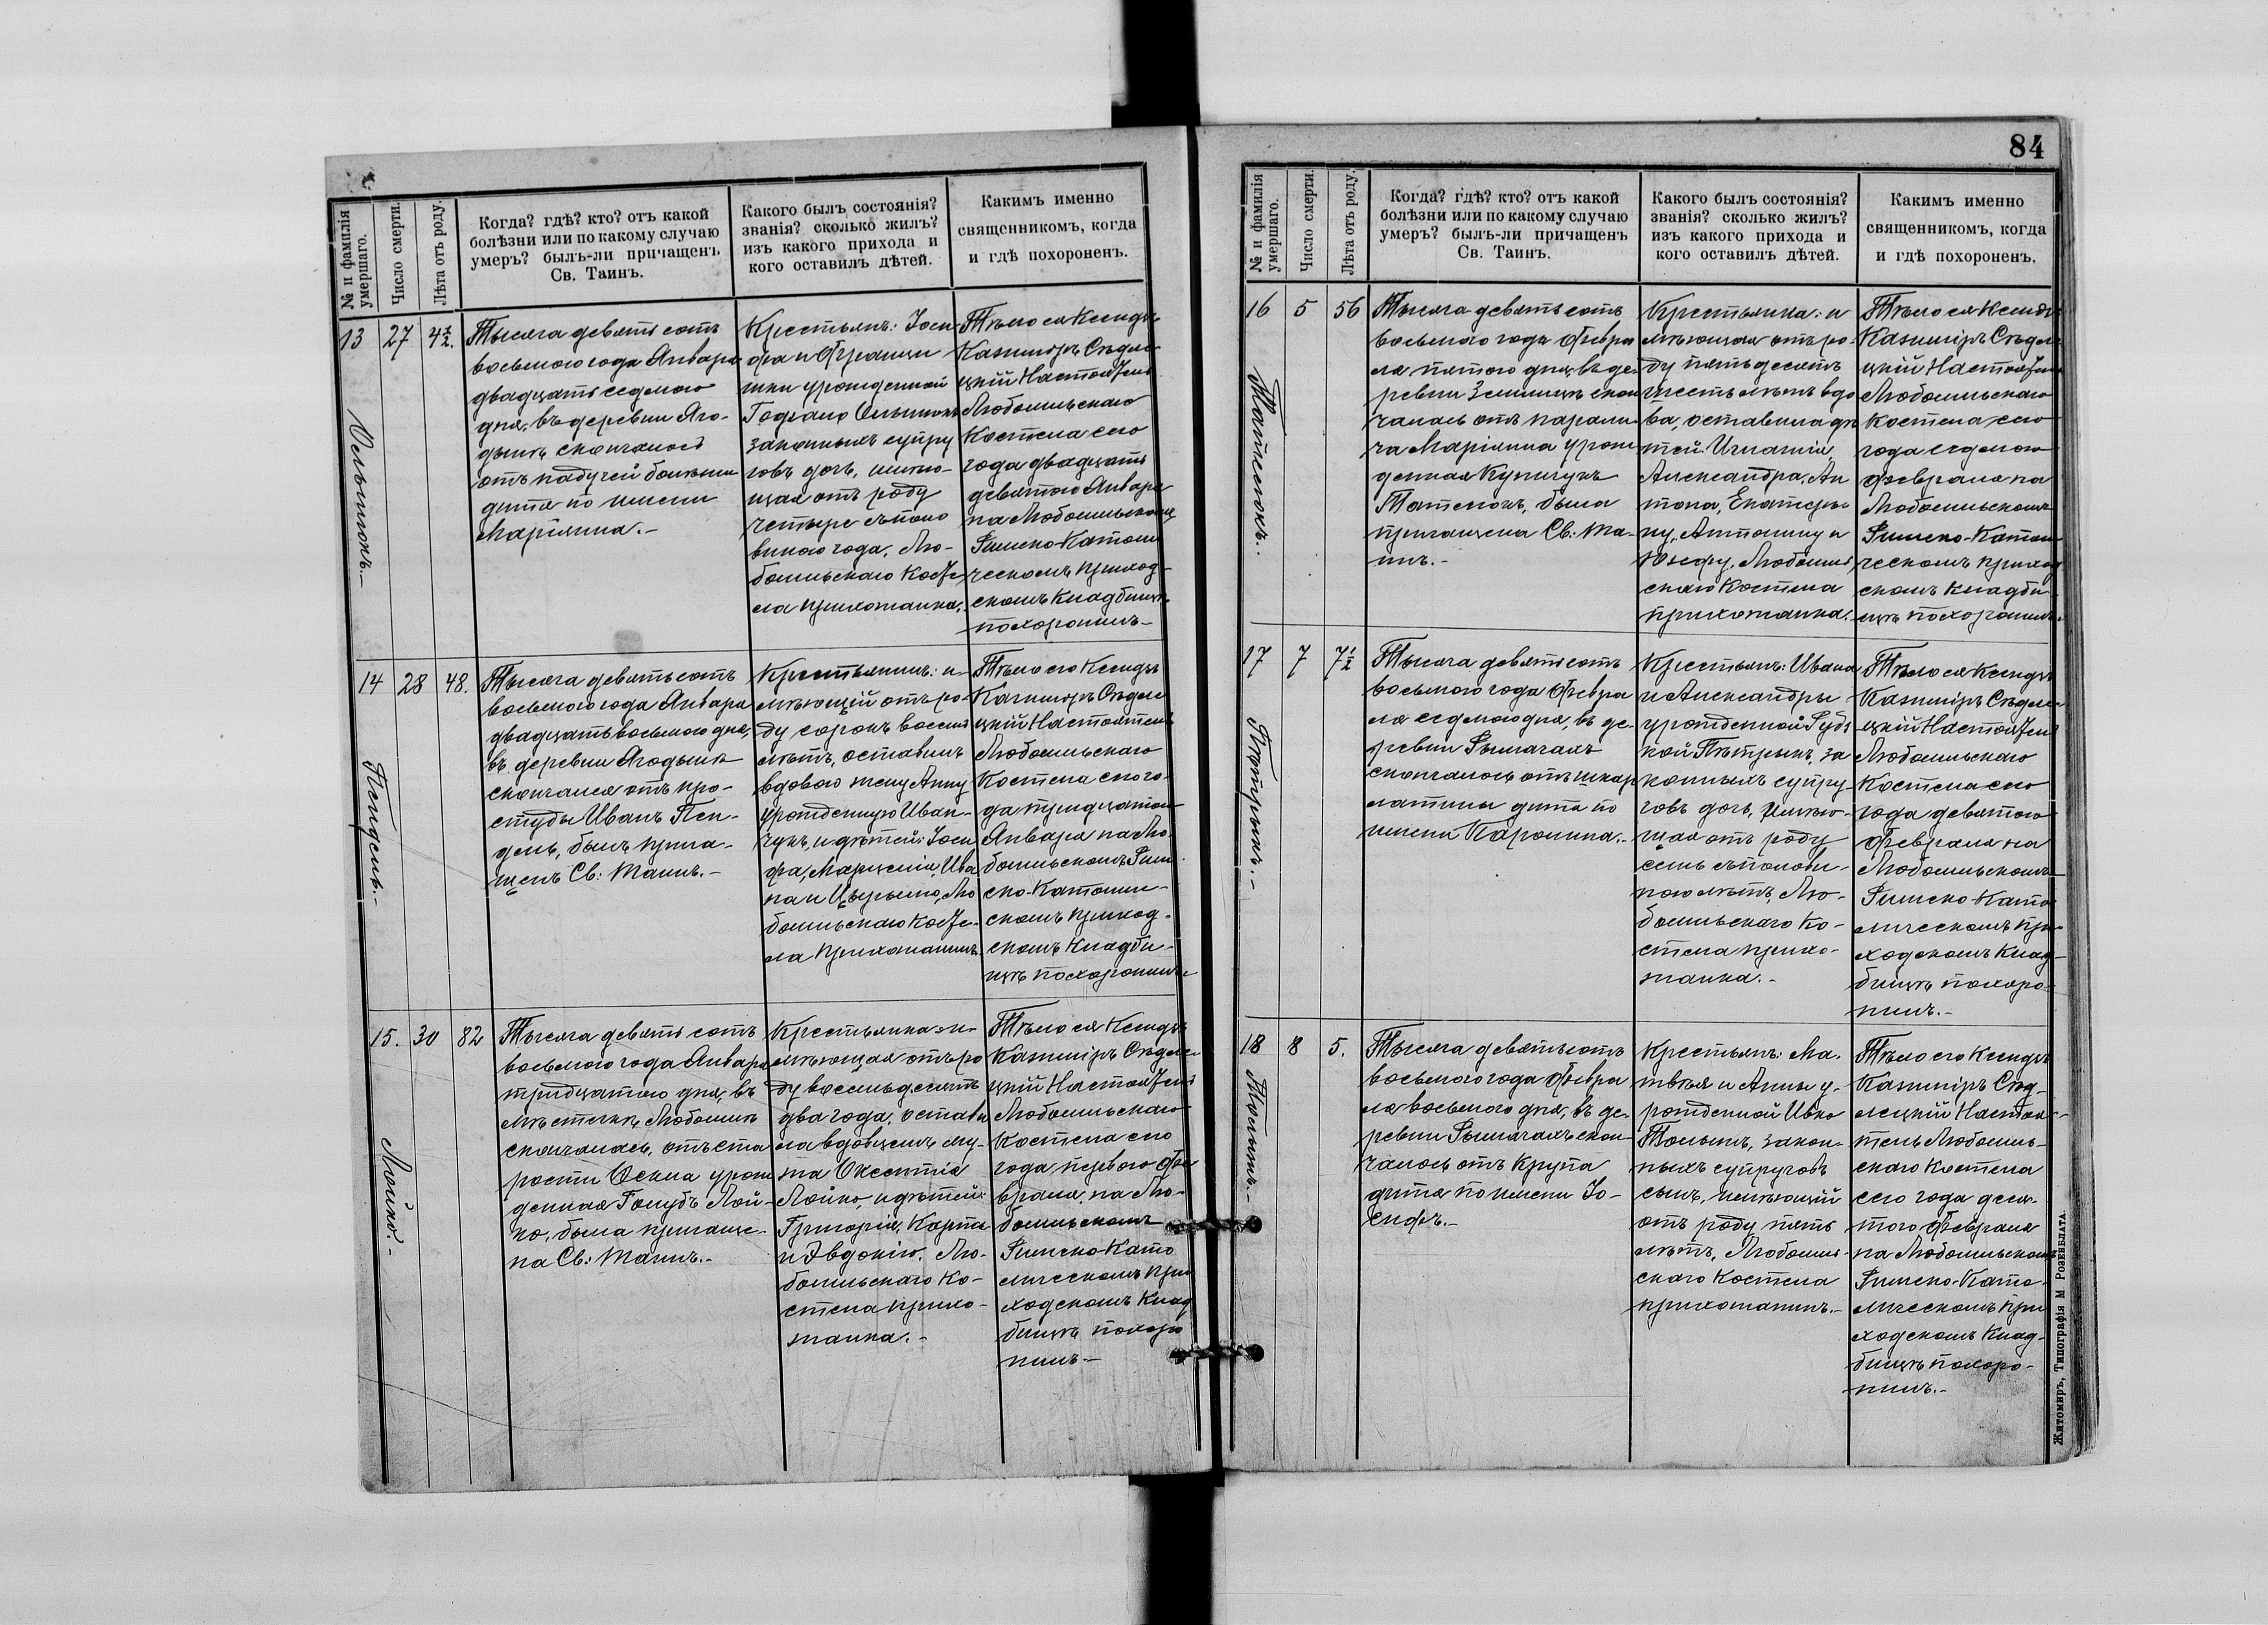 № и фамилія умершаго.
Число смерти.
Лѣта отъ роду.
Когда? гдѣ? кто? отъ какой
болѣзни или по какому случаю
умеръ? былъ-ли причащенъ
Св. Таинъ.
Какого былъ состоянія?
званія? сколько жилъ?
изъ какого прихода и
кого оставилъ дѣтей.
Какимъ именно
священникомъ, когда
и гдѣ похороненъ.
13
27
4½.
Тысяча девятьсотъ
восьмого года Января
двадцать седьмого
дня, въ деревни Яго-
дынѣ скончалось
отъ падучей болѣзни
дитя по имени
Маріянна.-
Крестьянъ: Іоси-
фа и Францы
шки урожденной
законныхъ супру
говъ дочь, имѣю-
щая отъ роду
четыре съ поло
виною года, Лю-
бомльскаго косте
ла прихожанка.
Тѣло ея Ксендзъ
Казиміръ Сѣдле
цкій Настоятель
Любомльскаго
Костела сего
года двадцать
девятого Января
на Любомльскомъ
Римско-Католи
ческомъ приход-
скомъ кладбищѣ
похоронилъ.-
14
28
48.
Пендель.-
Тысяча девятьсотъ
восьмого года Января
двадцать восьмого дня,
въ деревни Ягодынѣ
скончался отъ про-
студы Иванъ Пен-
дель, былъ прича-
щенъ Св: Таинъ.-
Крестьянинъ: и-
мѣющій отъ ро-
ду сорокъ восемь
лѣтъ, оставилъ
вдовою жену Анну
урожденную Иван-
чукъ, и дѣтей: Іоси
фа, Марцелія, Ива
на и Цезрыю, Лю
бомльскаго косте-
ла прихожанинъ.
Тѣло его Ксендзъ
Казиміръ Сѣдле
цкій Настоятель
Любомльскаго
Костела сего го-
да тридцатого
Января на Лю-
бомльскомъ Рим
ско-Католиче-
скомъ приход-
скомъ кладби-
щѣ похоронилъ.-
15.
30
82
Лойко.-
Тысяча девятьсотъ
восьмого года Января
тридцатого дня, въ
мѣстечкѣ Любомлѣ
скончалась, отъ ста
рости Фекла урож
денная Голубъ Лой-
ко, была причаще-
на Св: Таинъ.-
Крестьянка: и-
мѣющая отъ ро
ду восемьдесятъ
два года, остави
ла вдовцемъ му-
жа Оксентія
Лойко, и дѣтей:
Григорія, Карпа
и Эвдокію, Лю-
бомльскаго ко-
стела прихо-
жанка.-
Тѣло ея Ксендзъ
Казиміръ Сѣдле-
цкій Настоятель
Любомльскаго
Костела сего
года перваго Фе
враля, на Лю-
бомльскомъ
Римско-Като
лическомъ при
ходскомъ клад
бищѣ похоро
нилъ.-
84
№ и фамилія умершаго.
Число смерти.
Лѣта отъ роду.
Когда? гдѣ? кто? отъ какой
болѣзни или по какому случаю
умеръ? былъ-ли причащенъ
Св. Таинъ.
Какого былъ состоянія?
званія? сколько жилъ?
изъ какого прихода и
кого оставилъ дѣтей.
Какимъ именно
священникомъ, когда
и гдѣ похороненъ.
16
5
56
Тысяча девятьсотъ
восьмого года Февра
ля пятого дня, въ де
ревни Землицѣ скон
чалась отъ парали-
ча Маріянна урож
денная
была
причащена Св: Та-
инъ.-
Крестьянка: и
мѣющая отъ ро-
ду пятьдесятъ
шесть лѣтъ вдо
ва, оставила дѣ
тей: Игнатія,
Александра, Ан
тона, Екатери
ну, Антонину и
Юзефу, Любомль
скаго Костела
прихожанка.-
Тѣло ея Ксендзъ
Казиміръ Сѣдле
цкій Настоятель
Любомльскаго
Костела сего
года седьмого
Февраля на
Любомльскомъ
Римско-Католи
ческомъ приход
скомъ кладби-
щѣ похоронилъ.-
17
7
7½
Тысяча девятьсотъ
восьмого года Февра
ля седьмого дня, въ де-
ревни Рымачахъ
скончалось отъ шкар
латины дитя по
имени Каролина.-
Крестьянъ: Ивана
и Александры
урожденной Рудз
кой Пѣтрыкъ, за
конныхъ супру-
говъ дочь, имѣю-
щая отъ роду
семь съ полови-
ною лѣтъ, Лю-
бомльскаго Ко-
стела прихо-
жанка.-
Тѣло ея Ксендзъ
Казиміръ Сѣдле-
цкій Настоятель
Любомльскаго
Костела сего
года девятого
Февраля на
Любомльскомъ
Римско-Като
лическомъ при
ходскомъ клад-
бищѣ похоро
нилъ.-
18
8
5.
Тысяча девятьсотъ
восьмого года Февра
ля восьмого дня, въ де-
ревни Рымачахъ скон-
чалось отъ крупа
дитя по имени Іо-
сифъ.-
Крестьянъ: Ма-
твѣя и Анны у-
рожденной Ивко
закон-
ныхъ супруговъ
сынъ, имѣющій
отъ роду пять
лѣтъ, Любомль-
скаго Костела
прихожанинъ.-
Тѣло его Ксендзъ
Казиміръ Сѣд-
лецкій Настоя-
тель Любомль-
скаго Костела
сего года деся-
того Февраля
на Любомльскомъ
Римско-Като-
лическомъ при
ходскомъ клад-
бищѣ похоро-
нилъ.-
Житомиръ, Типографія М Розенблата.